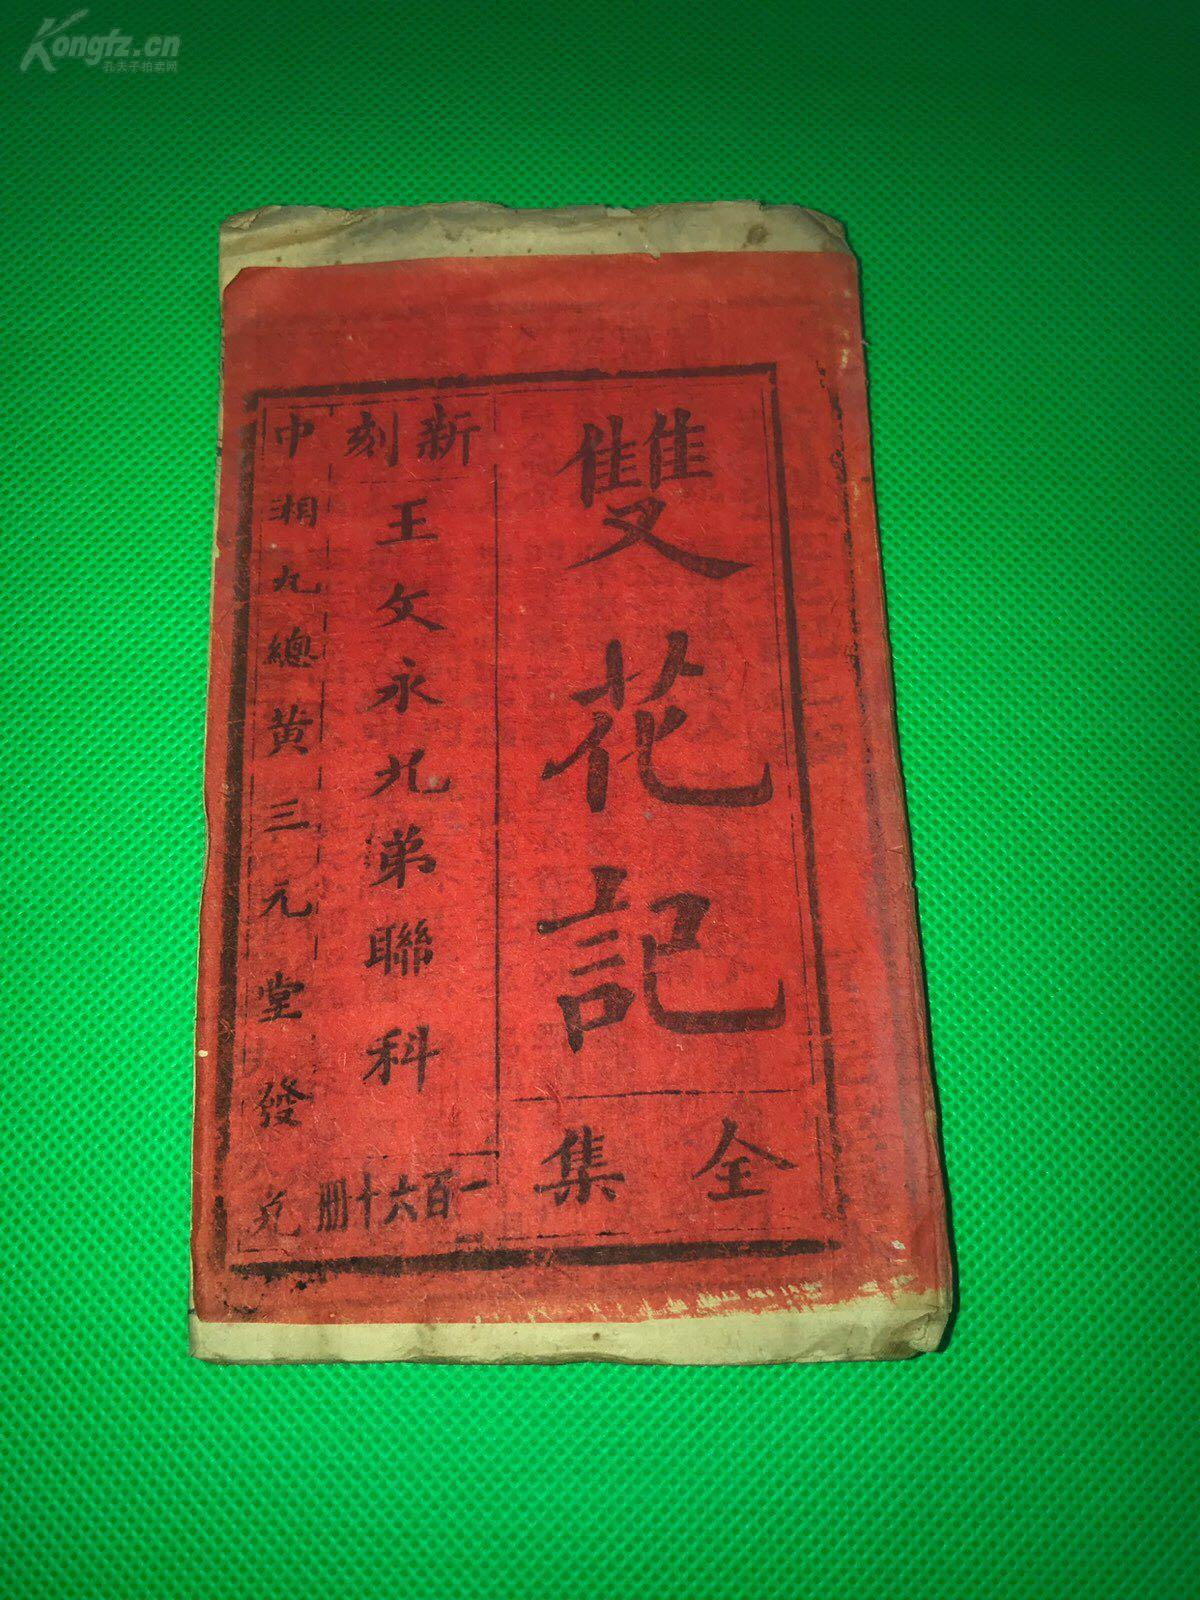 Kongfz.cn
孔夫子拍卖网
雙花記
全集
新刻
王文永兄弟聯科
一百六十冊
中湘九總黃三元堂發兌